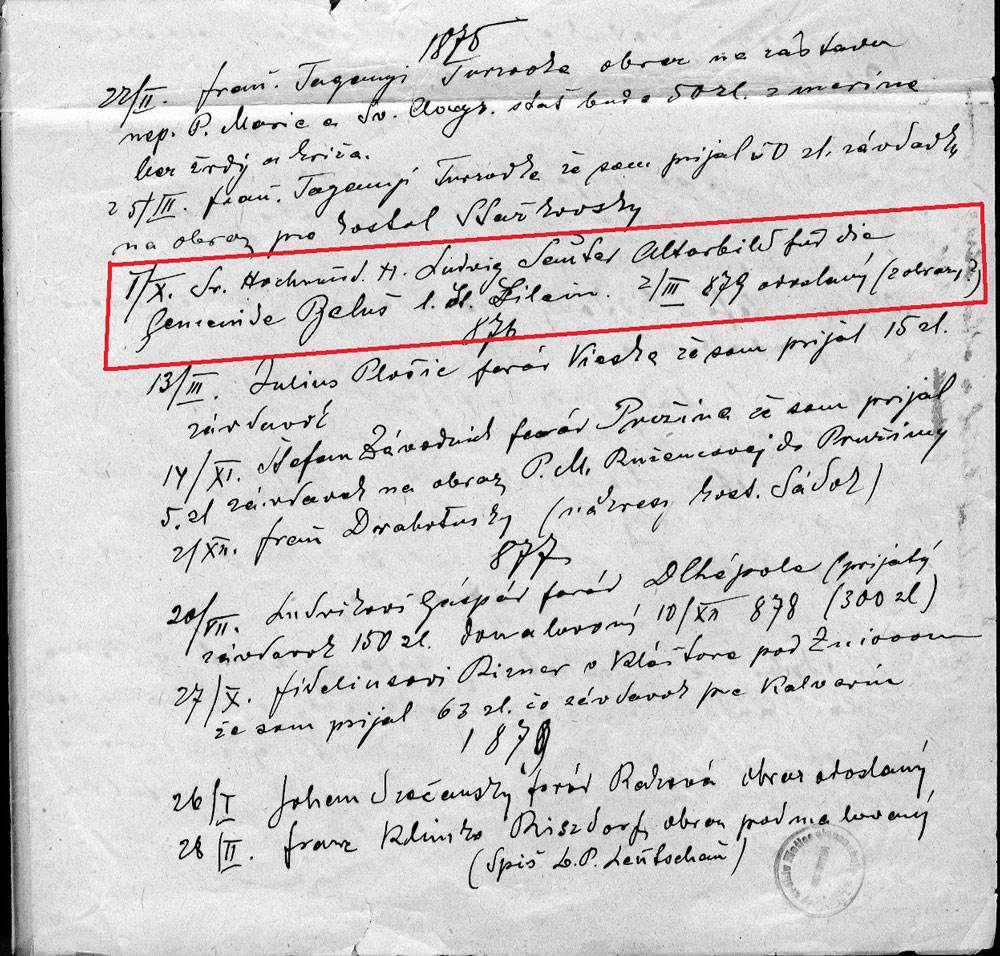 1875
22/II. Fraň. Taganyi Turzovka obraz na zástavu
nep. P. Marie a Sv. stáť bude 50 zl. z marina
bez žrdý a kríža.
25/III. Fraň. Taganyi Turzovka že som prijal 50 zl. závdavky
na obraz pro kostol Stažkovský
1/X. Sr. Hochwürd. H. Ludvig Altarbild für die
Gemeinde Beluš l. P. Silein. 2/III 879 odoslaný (2 obrazy?)
876
13/III. Julius Plošic farár Vieska že som prijal 15 zl.
závdavok
14/XI. Štefan Závodník farár Pružina že som prijal
5. zl závdavok na obraz P. M. Ružencovej do Pružiny
2/XII. Fraň Drahotuský (nákresy kost. Sádok)
877
20/VII. Ludvikovi Gáspár farár Dlhépole (prijatý
závdavok 150 zl. 10/XII 878 (300 zl)
27/X. Fideliusovi Rizner v Kláštore pod Zniovom
že som prijal 63 zl. čo závdavok pre Kalvariu
1879
26/I Johan Sračanský farár Raková obraz odoslaný
28/II. Franz Klimko Riszdorf, obraz podmalovaný
(Spiš L. P. Leutschau)